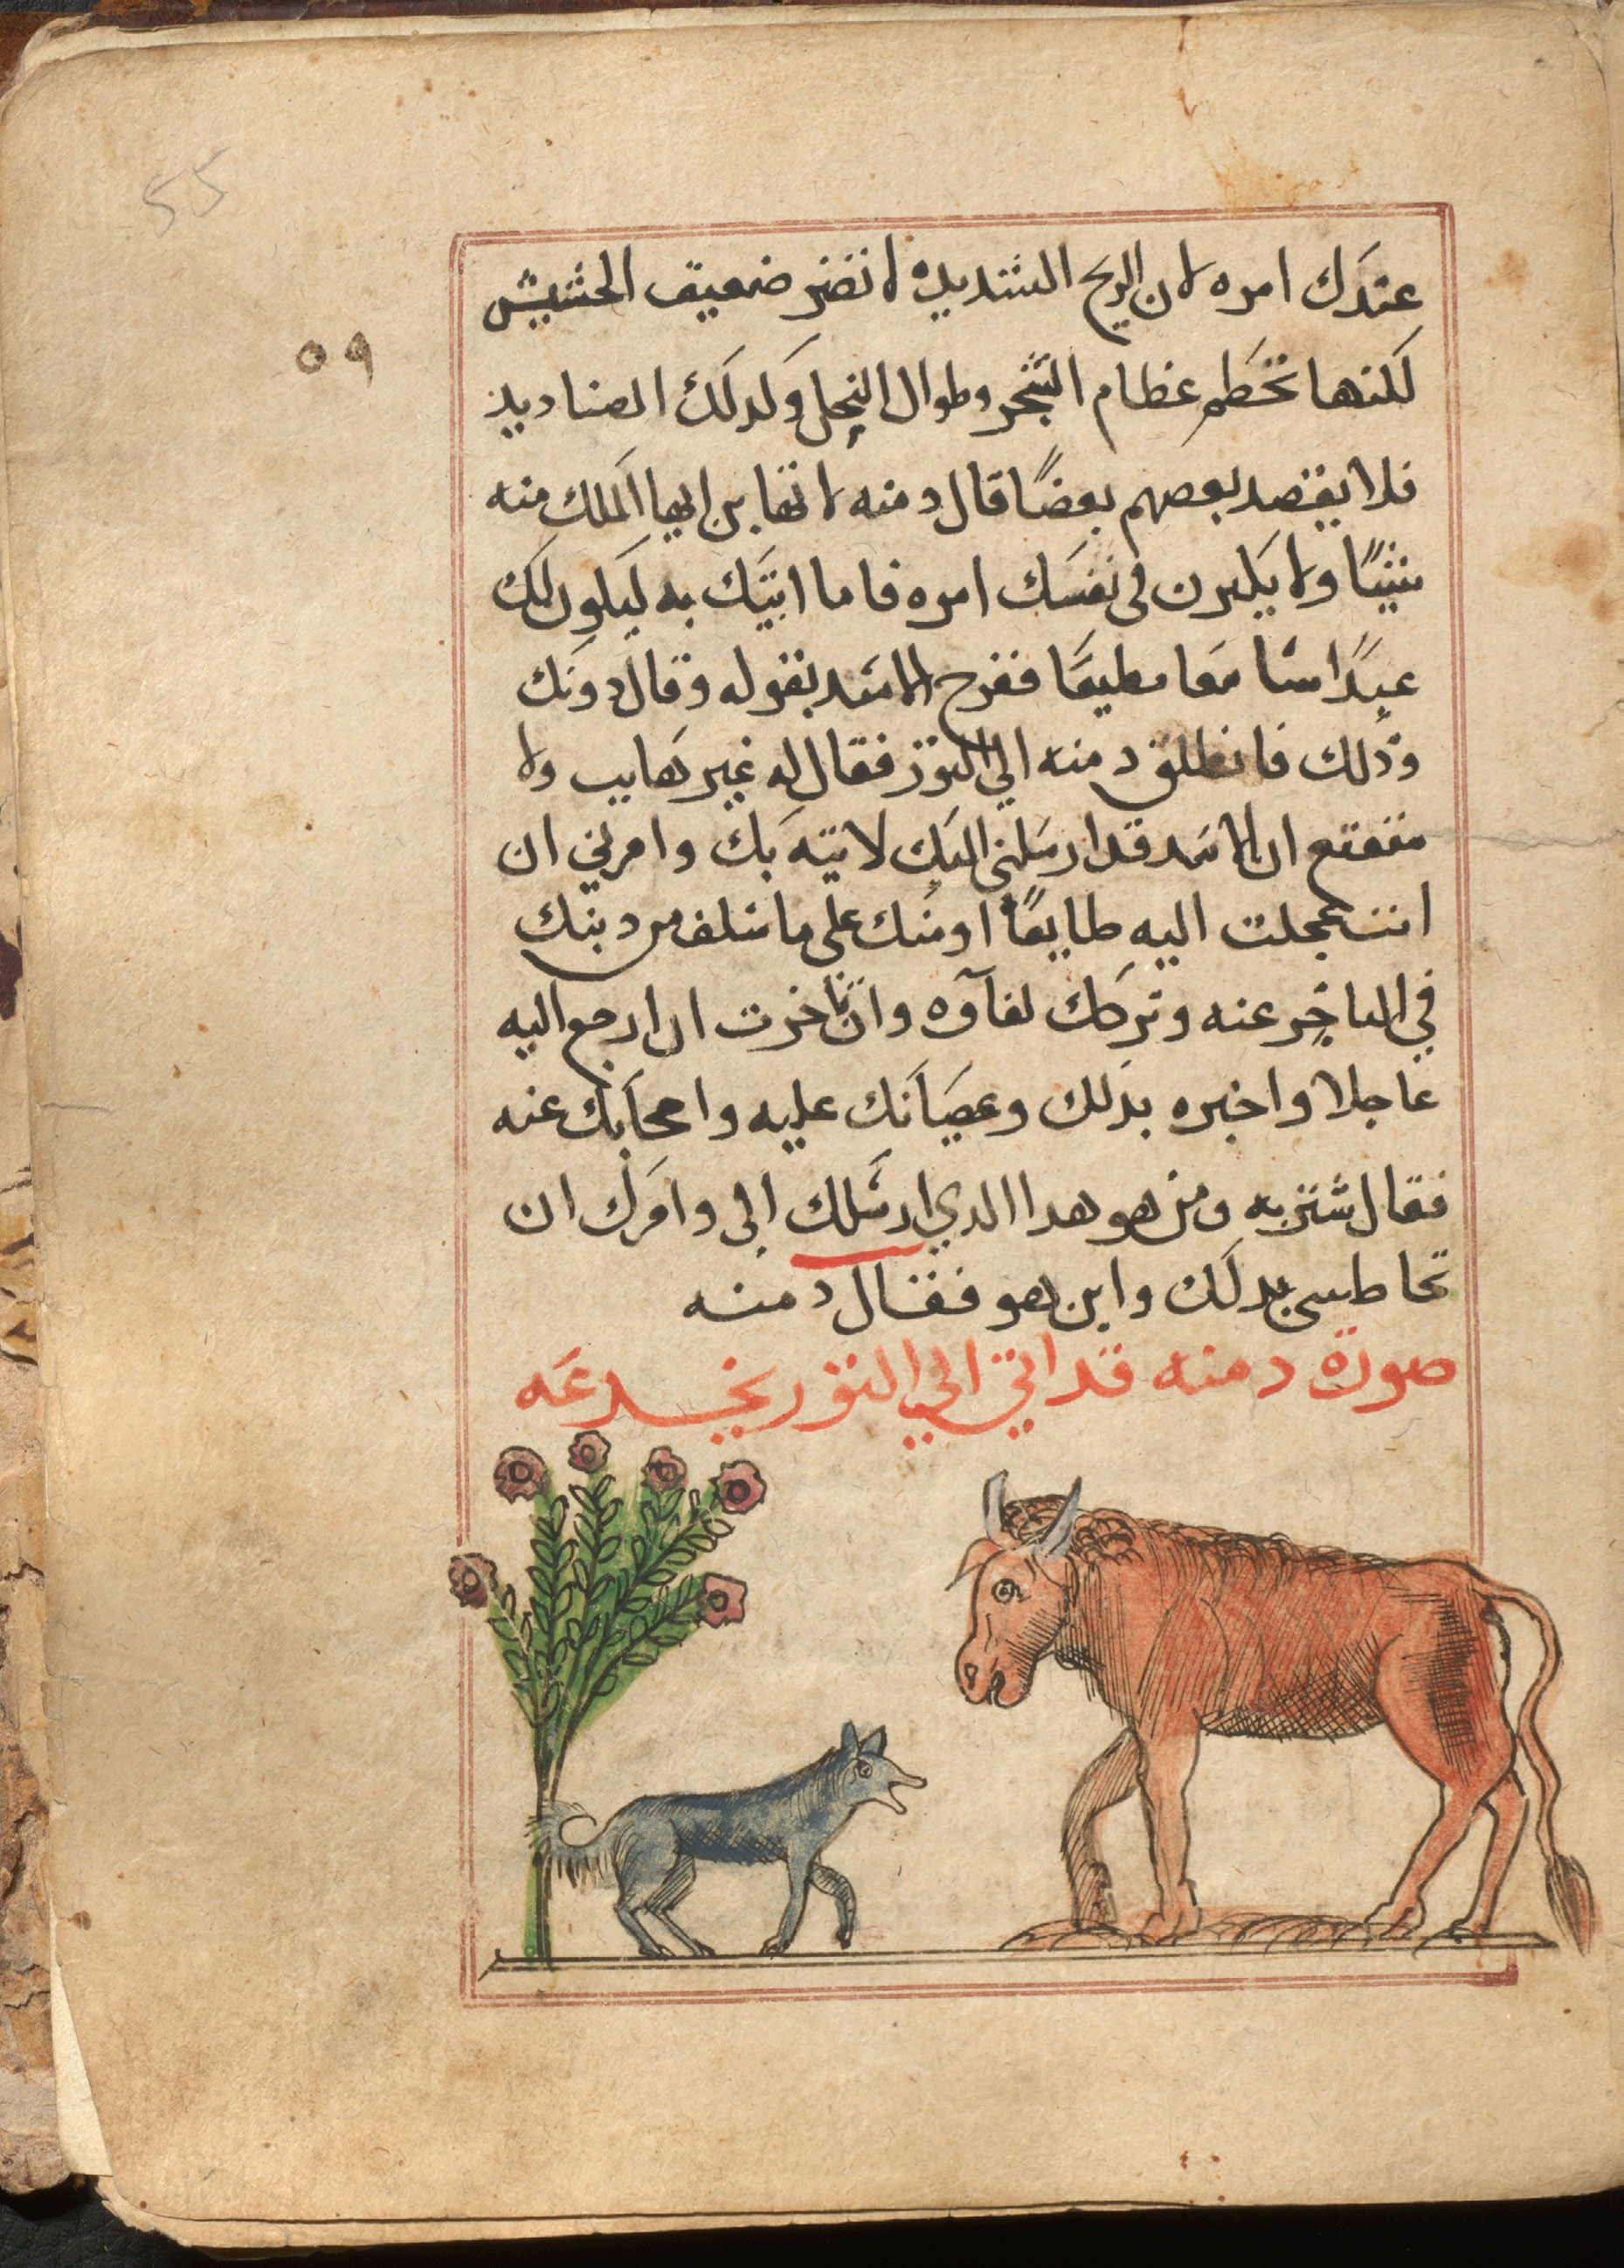 55
٥٩
عندك امره لان الريح الشديده لا تضر ضعيف الحشيش
لكنها تحطم عظام الشجر وطوال النخل وكدلك الصناديد
فلا يقصد بعصهم بعضًا قال دمنه لا تهابن ايها الملك منه
شيًا ولا يكبرن فى نفسك امره فاما اتيك به ليكون لك
عبدًا سامعا مطيعًا ففرح الاسد بقوله وقال دونك
وذلك فانطلق دمنه الي الثور فقال له غير هايب ولا
متعتع ان الاسد قد ارسلني اليك لاتيه بك وامرني ان
انت عجلت اليه طايعًا اومنك على ما سلف من دنبك
في التاخر عنه وتركك لقآوه وان تاخرت ان ارجع اليه
عاجلا واخبره بذلك وعصيانك عليه وامحابك عنه
فقال شتربه ومن هو هدا الدي ارسلك الى وامرك ان
تخاطبنى بدلك واين هو فقال دمنه
صورة دمنه قد اتي الي الثور يخدعه